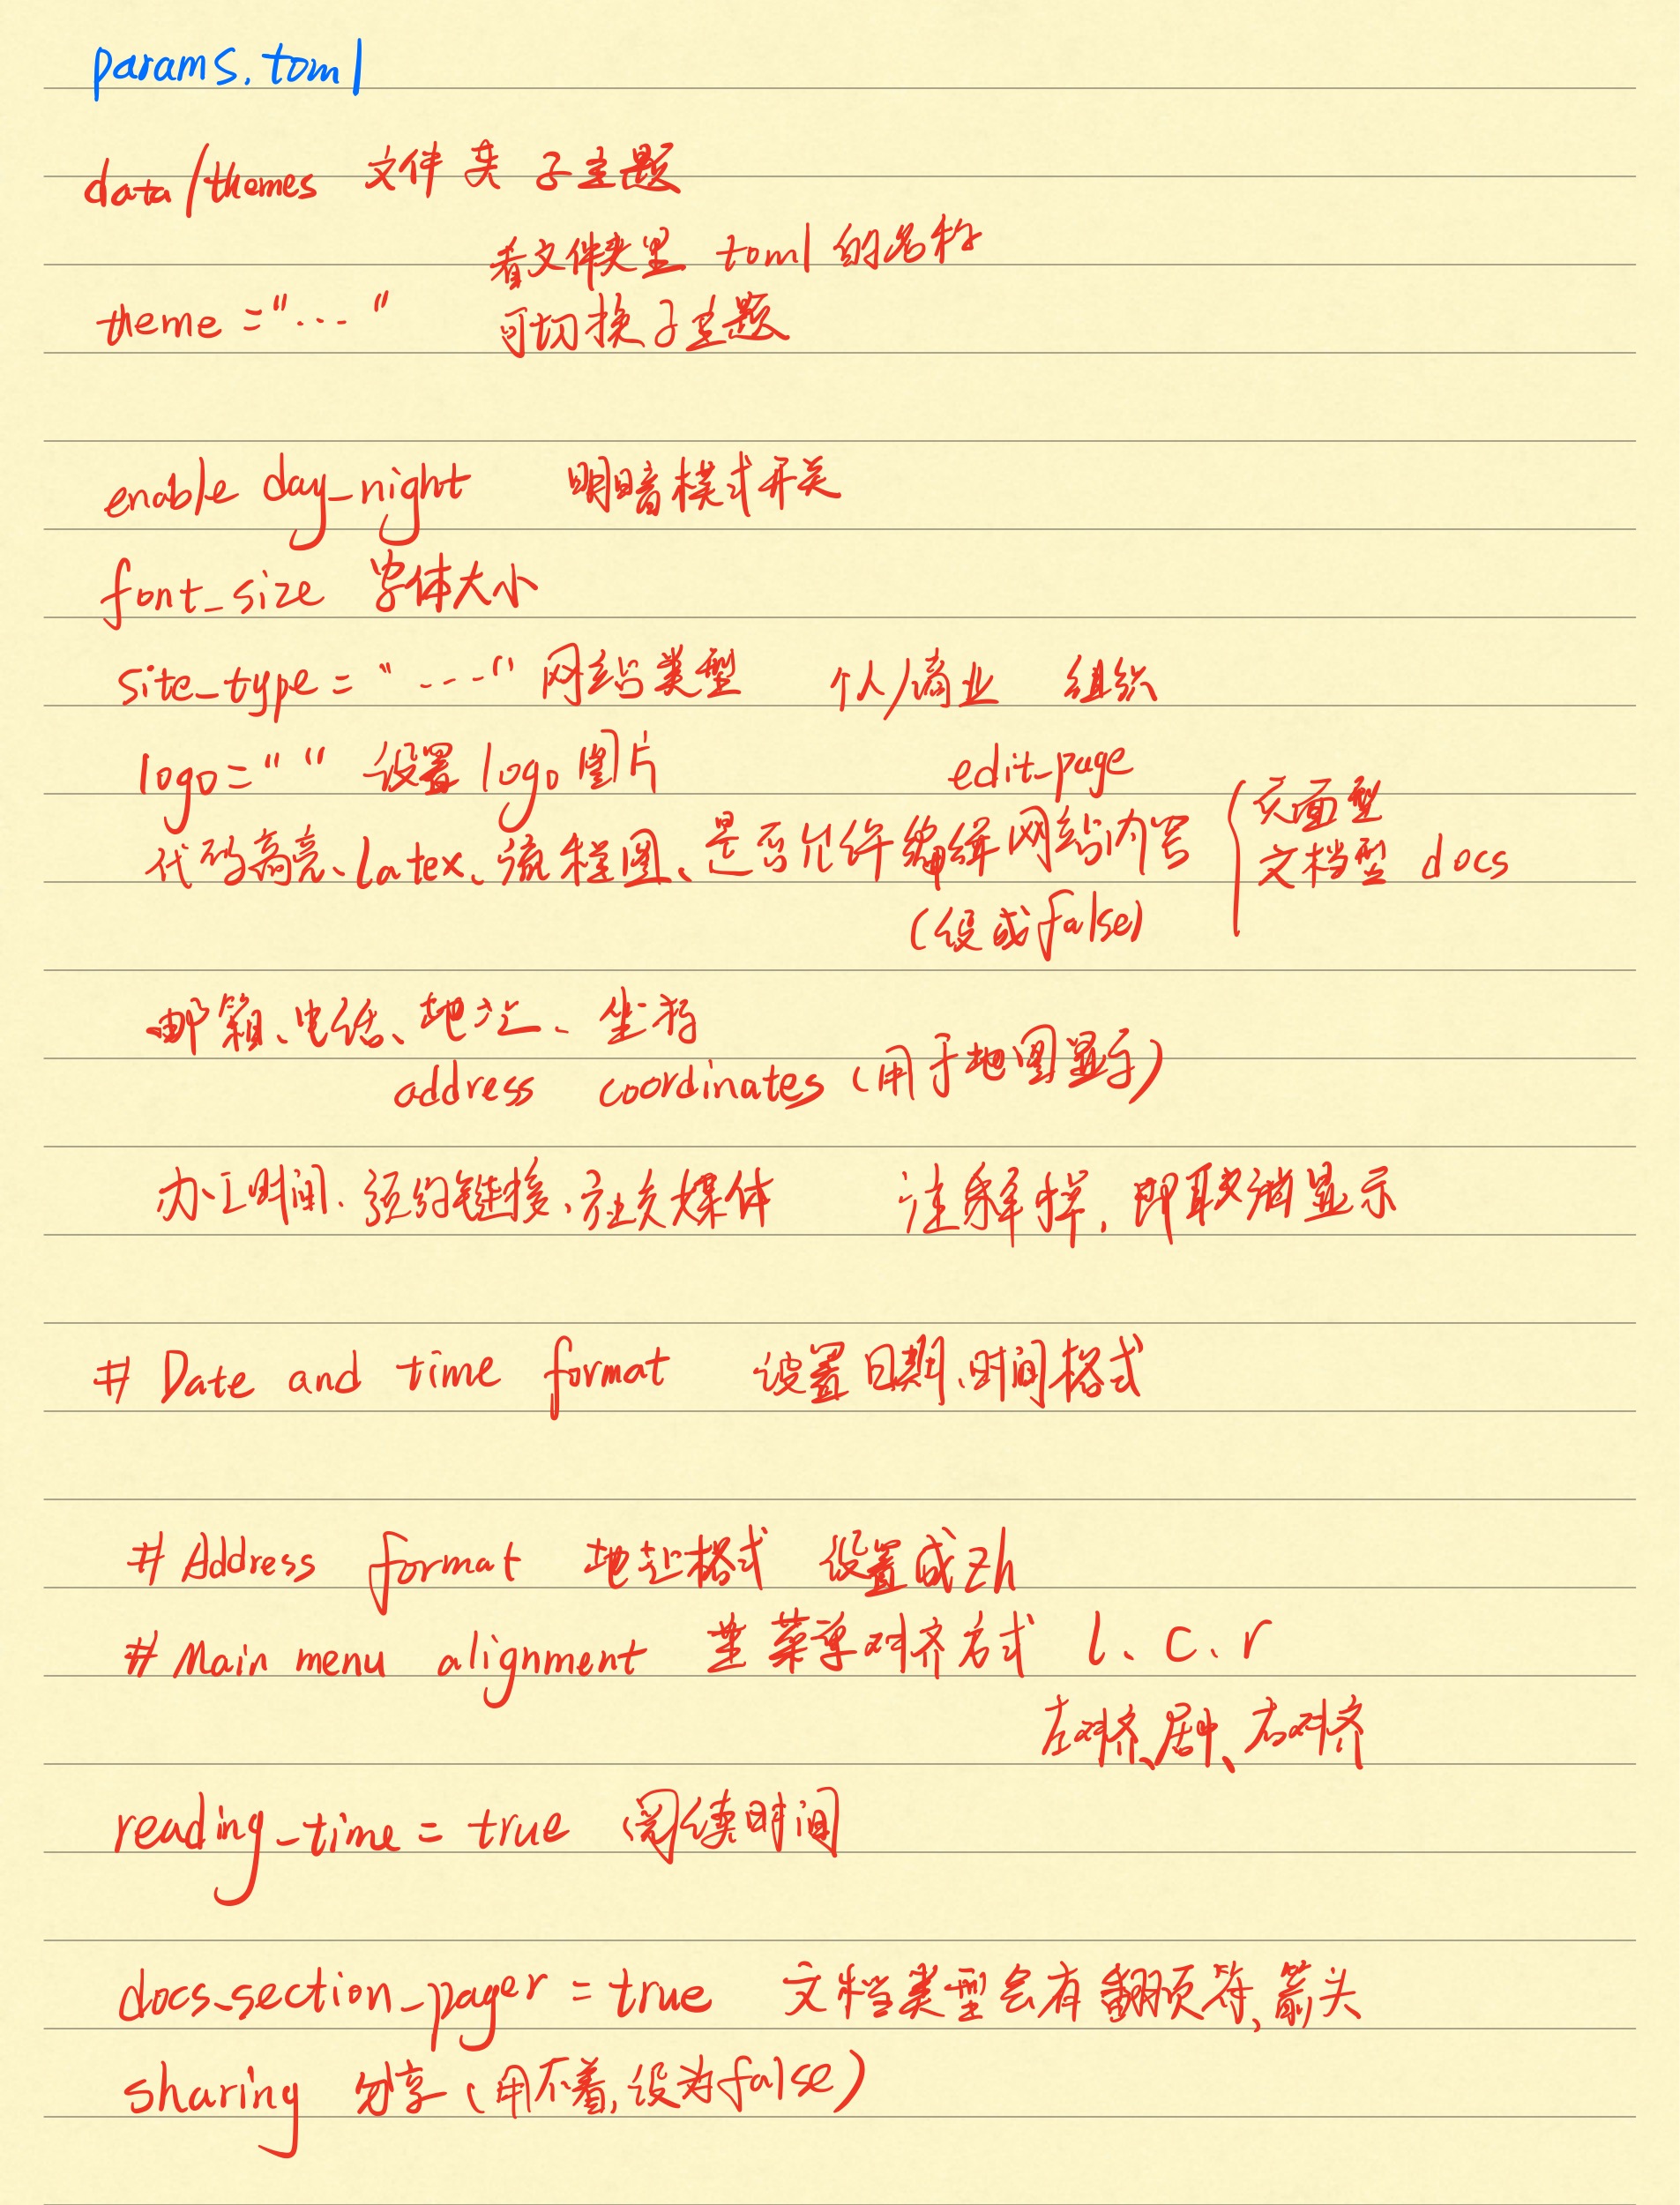 params.toml
data/themes 文件夹 子主题
看文件夹里 toml 的名称
theme="..." 可切换子主题
enable day_night 明暗模式开关
font_size 字体大小
site_type="...." 网站类型 个人/商业 组织
logo="" 设置logo图片 edit_page
代码高亮、latex、流程图、是否允许编辑网站内容 { 页面型
文档型 docs
(设成false)
邮箱、电话、地址、坐标
address coordinates (用于地图显示)
办工时间、预约链接、社交媒体 注释掉,即取消显示
# Date and time format 设置日期、时间格式
# Address format 地址格式 设置成zh
# Main menu alignment 主菜单对齐方式 l、c、r
左对齐、居中、右对齐
reading_time = true 阅读时间
docs_section_pager = true 文档类型会有翻页符、箭头
sharing 分享(用不着,设为false)